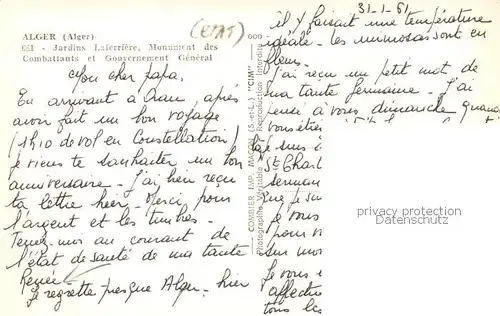 ALGER (Alger)
661 - Jardins Laferrière, Monument des
Combattants et Gouvernement Général
(ETAT)
Mon cher papa,
En arrivant à Oran, après
avoir fait un bon voyage
(1h10 de vol en Constellation)
je viens te souhaiter un bon
anniversaire - J'ai bien reçu
ta lettre hier - Merci pour
l'argent et les timbres -
Tenez-moi au courant de
l'état de santé de ma tante
Renée -
Je regrette presque Alger - hier
COMBIER IMP. MACON (S.-et-L.) "CIM"
Photographie Véritable Reproduction Interdite
31-1-61
il y faisait une température
idéale - les mimosas sont en
fleurs -
J'ai reçu un petit mot de
ma tante Germaine - J'ai
pensé à vous dimanche quand
vous étie
je suis
St Charl
German
que je su
je vous
pour v
sur mo
Je vous e
affectu
tous la
privacy protection
Datenschutz